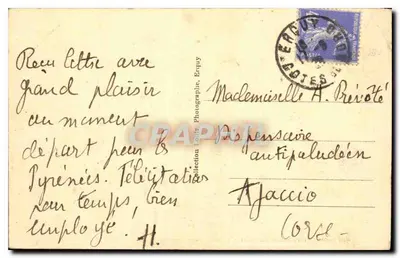 Reçu lettre avec
grand plaisir
au moment
départ pour les
Pyrénées. Félicitations
pour temps, bien
employé. H.
Photographe, Erquy
ERQUY
COTES DU
Mademoiselle A. Prévôté
Dispensaire
antipaludéen
Ajaccio
Corse
CPAPHIL